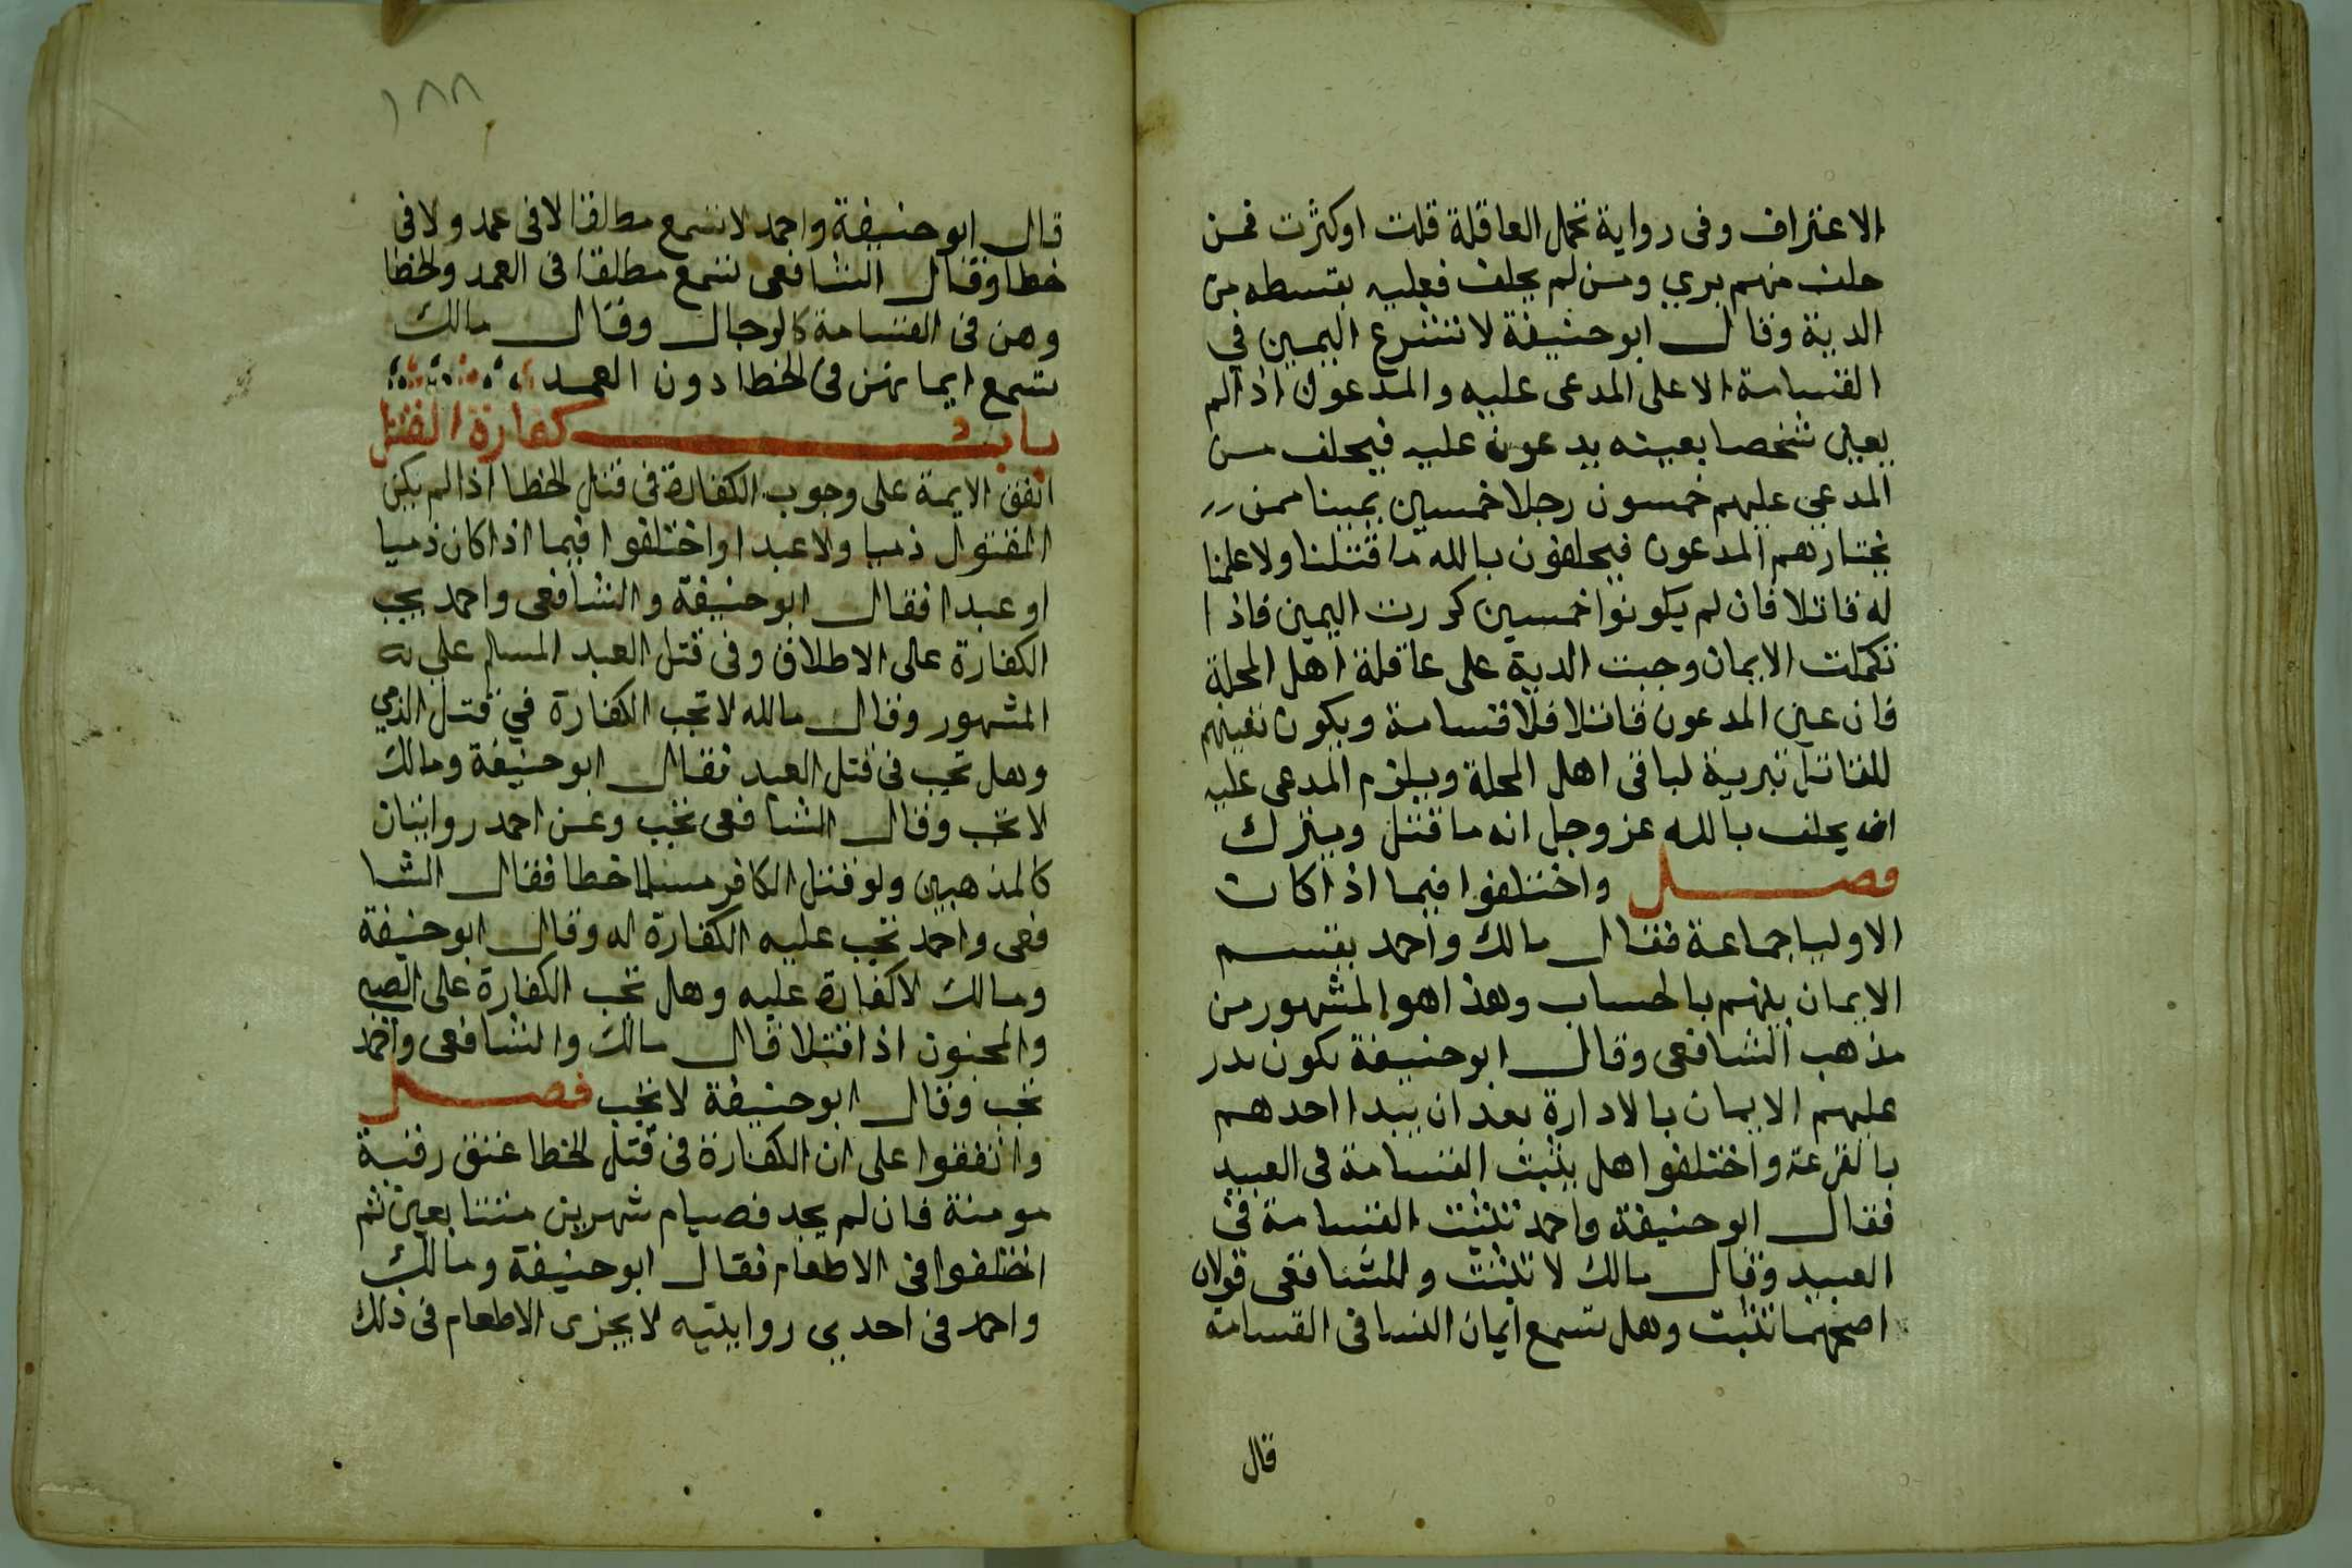 الاعتراف وفى رواية تحمل العاقلة قلت او كثرت فمن
حلف منهم بري ومن لم يحلف فعليه بقسطه من
الدية وقال ابو حنيفة لا تشرع اليمين في
القسامة الا على المدعى عليه والمدعون اذا لم
يعين شخصا بعينه يدعون عليه فيحلف من
المدعى عليهم خمسون رجلا خمسين يمينا ممن
يختارهم المدعون فيحلفون بالله ما قتلنا ولا علمنا
له قاتلا فان لم يكونوا خمسين كررت اليمين فاذا
تكملت الايمان وجبت الدية على عاقلة اهل المحلة
فان عين المدعون قاتلا فلا قسامة ويكون تعينهم
للقاتل تبرية لباقى اهل المحلة ويلزم المدعى عليه
ان يحلف بالله عز وجل انه ما قتل ويترك
فصل واختلفوا فيما اذا كان
الاوليا جماعة فقال مالك واحمد يقسم
الايمان بينهم بالحساب وهذا هو المشهور من
مذهب الشافعى وقال ابو حنيفة يكون يدر
عليهم الايمان بالادارة بعد ان يبدا احدهم
بالقرعة واختلفوا هل يثبت القسامة فى العبيد
فقال ابو حنيفة واحمد تثبت القسامة فى
العبيد وقال مالك لا تثبت وللشافعى قولان
اصحهما تثبت وهل تسمع ايمان النسا فى القسامة
قال
١٨٨
قال ابو حنيفة واحمد لا تسمع مطلقا لا فى عمد ولا فى
خطا وقال الشافعى تسمع مطلقا فى العمد والخطا
وهن فى القسامة كالرجال وقال مالك
تسمع ايمانهن فى الخطا دون العمد
باب كفارة القتل
اتفق الايمة على وجوب الكفارة فى قتل الخطا اذا لم يكن
المقتول ذميا ولا عبدا واختلفوا فيما اذا كان ذميا
او عبدا فقال ابو حنيفة والشافعى واحمد يجب
الكفارة على الاطلاق وفى قتل العبد المسلم على
المشهور وقال مالله لا تجب الكفارة في قتل الذمي
وهل تجب فى قتل العبد فقال ابو حنيفة ومالك
لا تجب وقال الشافعى تجب وعن احمد روايتان
كالمذهبين ولو قتل الكافر مسلما خطا فقال الشا
فعى واحمد تجب عليه الكفارة له وقال ابو حنيفة
ومالك لا كفارة عليه وهل تجب الكفارة على الصبي
والمجنون اذا قتلا قال مالك والشافعى واحمد
تجب وقال ابو حنيفة لا تجب فصل
واتفقوا على ان الكفارة فى قتل الخطا عتق رقبة
مومنة فان لم يجد فصيام شهرين متتابعين ثم
اختلفوا فى الاطعام فقال ابو حنيفة ومالك
واحمد فى احدي روايتيه لا يجزى الاطعام فى ذلك